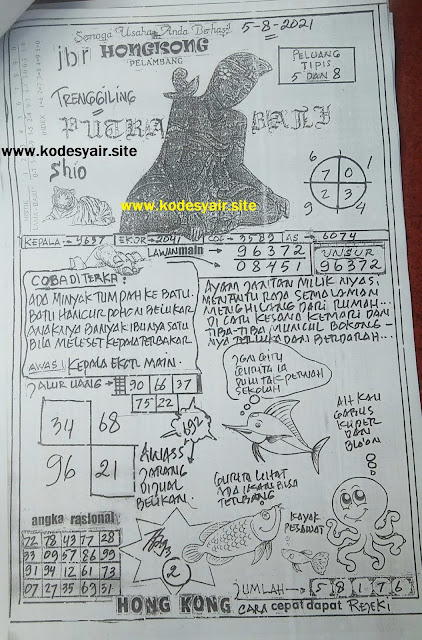 Semoga Usaha Anda Berhasil
5-8-2021
jbr HONGKONG
PELAMBANG
PELUANG
TIPIS
5 DAN 8
TRENGGILING
PUTRA BALI
www.kodesyair.site
Shio
www.kodesyair.site
6 1
7 0
2 3
9 4
KEPALA 9637 EKOR 2041 COP 3582 AS 6074
LAWAN main 96372
08451
UNSUR
96372
COBA DITERKA:
ADA MINYAK TUMPAH KE BATU.
BATU HANCUR POHON BELUKAR
ANAKNYA BANYAK IBUNYA SATU
BILA MELESET KEPALA TERBAKAR
AWAS! KEPALA EKOR MAIN.
AYAM JANTAN MILIK NYAI
MENANTU RAJA SEMALAMAN
MENGHILANG DARI RUMAH...
DI CARI KESANA KEMARI DAN
TIBA-TIBA MUNCUL BOKONG-
NYA TERLUKA DAN BERDARAH...
JALUR UANG 30 66 37
75 22
34 68
96 21
192
AWASS
JARANG
DIJUAL
BELIKAN.
JGN GITU
GURITA IA
DULU TAK PERNAH
SEKOLAH
AIH KAU
GABUS
KUPER
DAN
BLO'ON
GURITA LIHAT
ADA IKAN BISA
TERBANG
KAYAK
PESAWAT
angka rasional
72 78 43 77 28
33 09 57 86 99
91 34 12 61 73
07 27 35 69 51
2
JUMLAH 5 8 1 7 6
HONG KONG CARA cepat dapat REJEKI